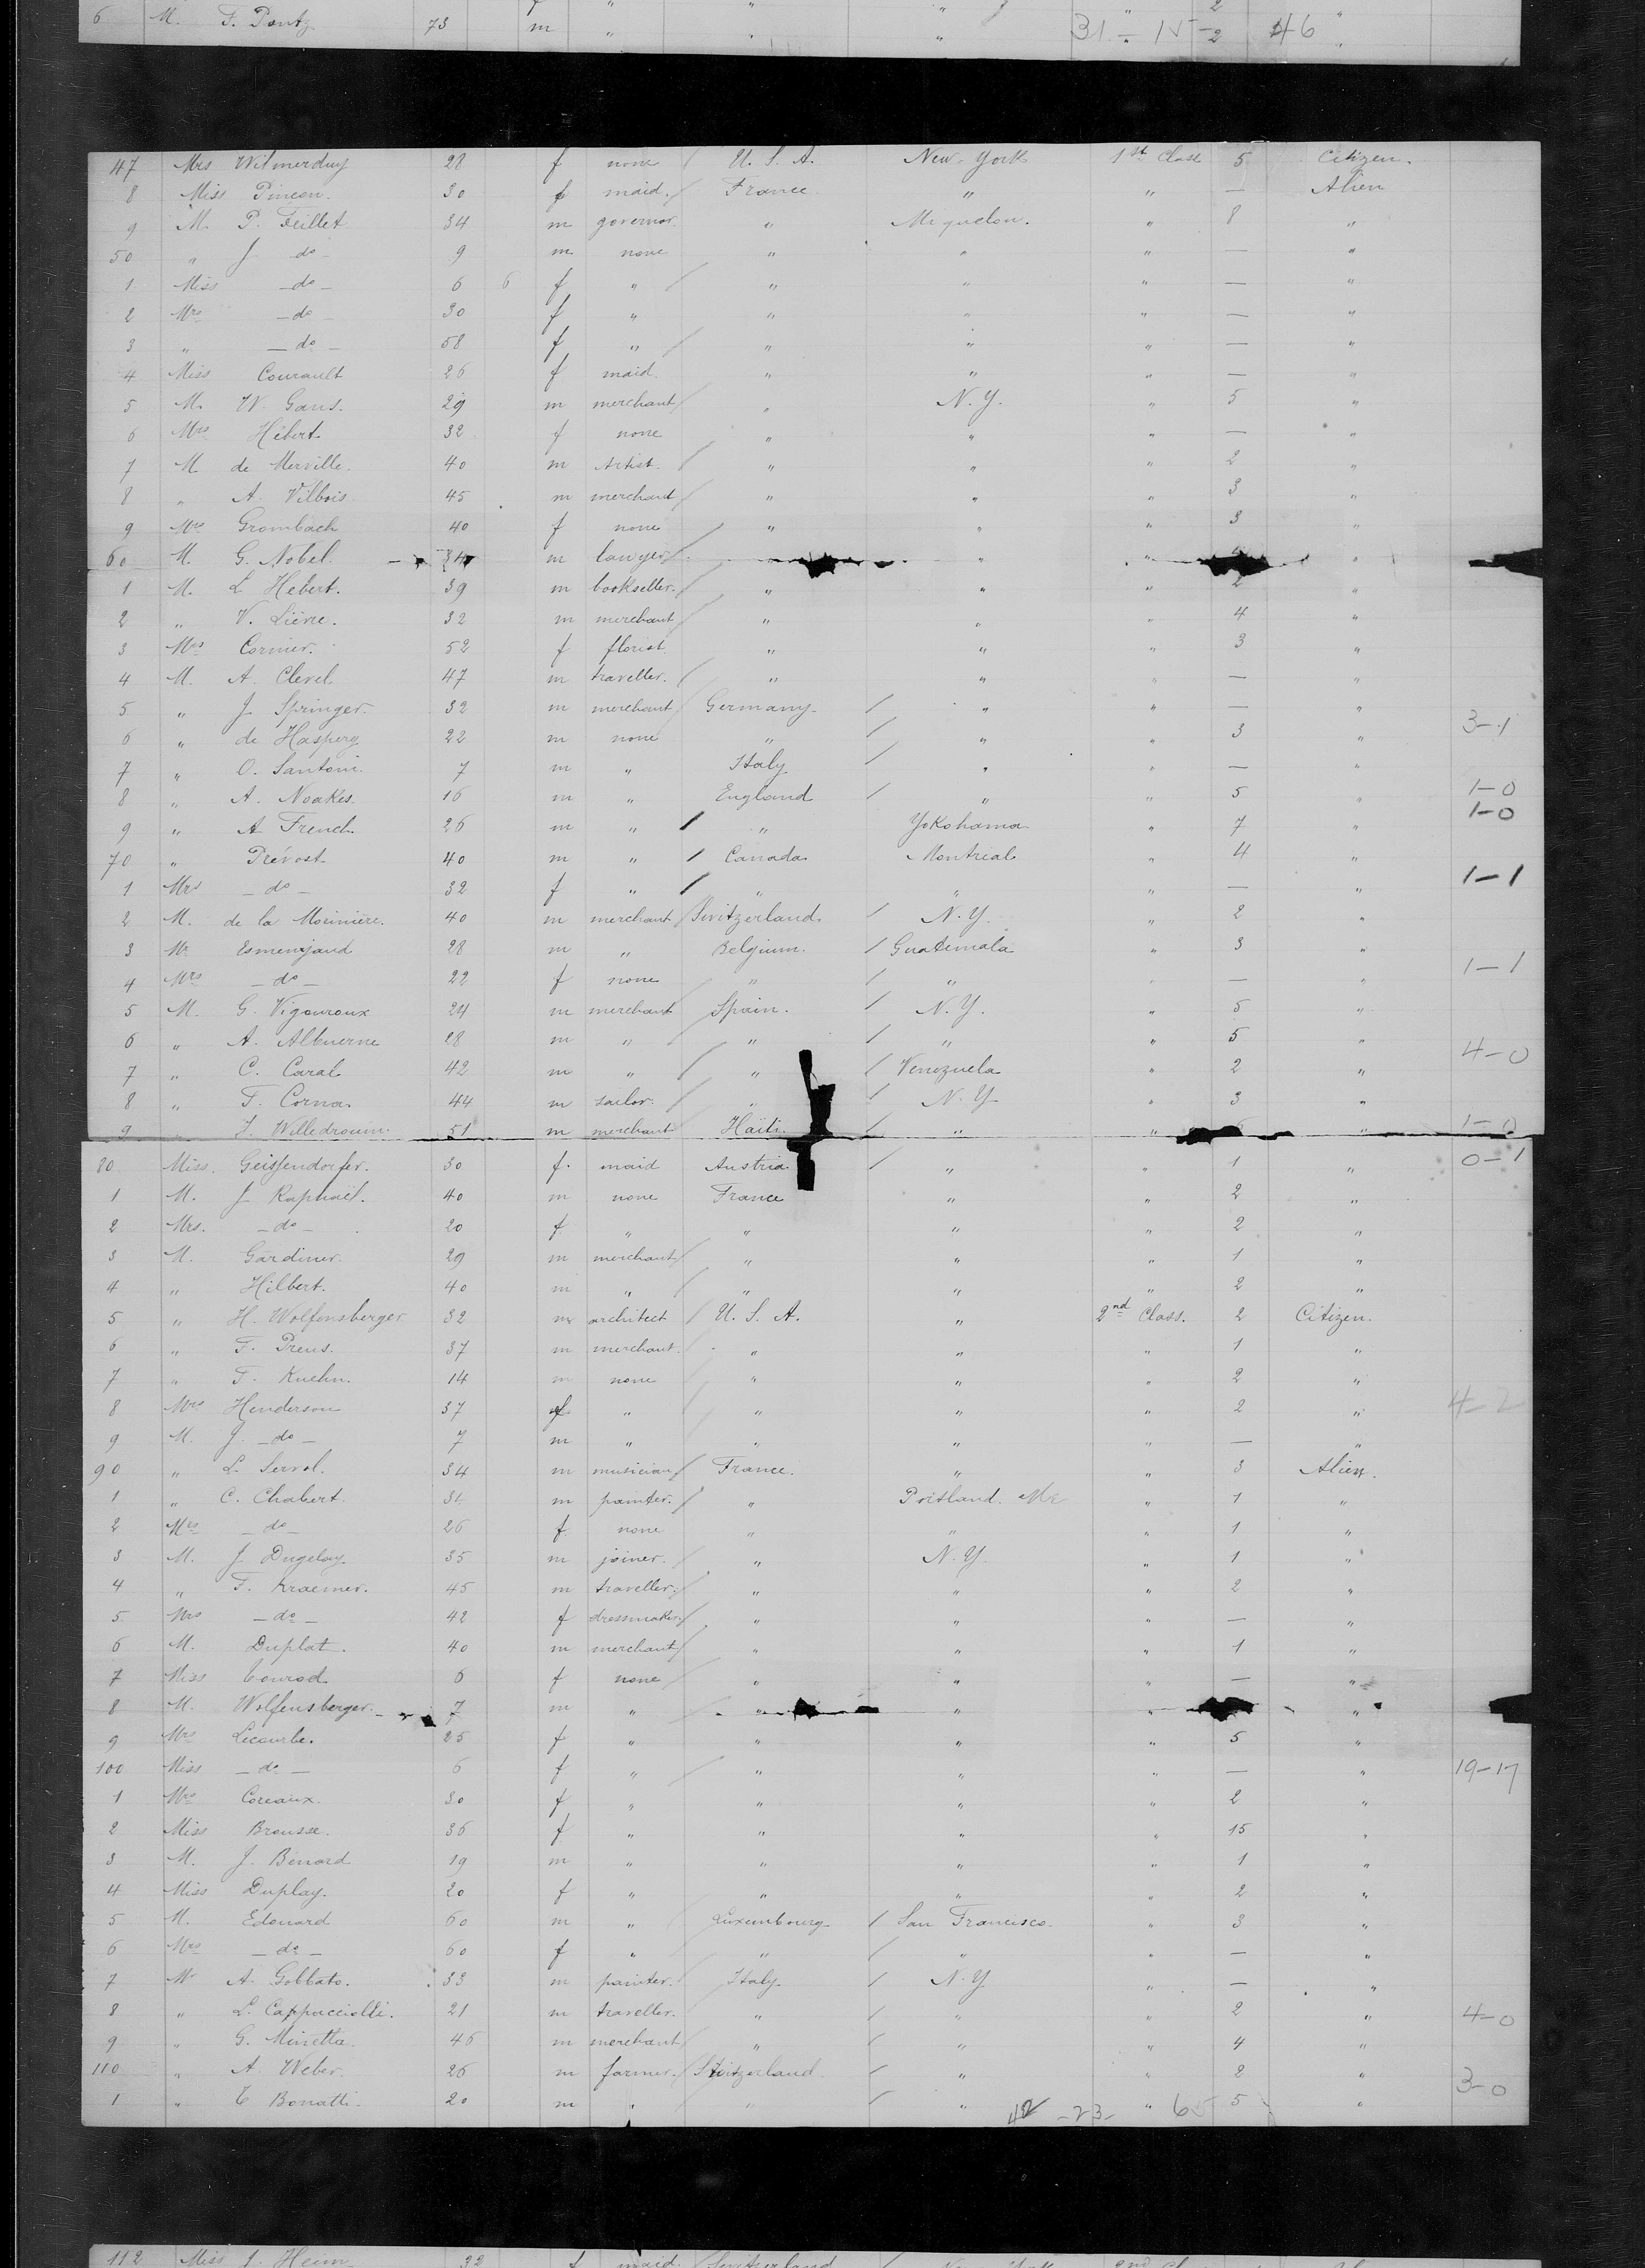 6 M. F. Pantz 73 m " " " 31 - 15 - 2 46 "
47 Mrs Wilmerduy 28 f none / U. S. A. New-York 1st Class 5 Citizen.
8 Miss Pinçon. 30 f maid. / France " " — Alien
9 M. P. Feillet 34 m governor. " Miquelon. " 8 "
50 " J. do - 9 m none " " " — "
1 Miss - do - 6 6 f " / " " " — "
2 Mrs - do 30 f " " " " — "
3 " - do - 58 f " / " " " — "
4 Miss Courault 26 f maid. " " " — "
5 M. W. Gans. 29 m merchant / " N. Y. " 5 "
6 Mrs Hébert. 32 f none " " " — "
7 M. de Merville. 40 m Artist. / " " " 2 "
8 " A. Vilbois 45 m merchant / " " " 3 "
9 Mrs Grombach 40 f none / " " " 3 "
60 M. G. Nobel. 34 m lawyer / " " "
1 M. L. Hebert. 39 m bookseller. / " " " 2 "
2 " V. Lièvre. 32 m merchant / " " " 4 "
3 Mrs Cornier. 52 f florist " " " 3 "
4 M. A. Clerel. 47 m traveller. / " " " — "
5 " J. Springer. 32 m merchant / Germany / " " — "
6 " de Hasperg 22 m none " / " " 3 " 3-1
7 " O. Santoni. 7 m " Italy / " " — "
8 " A. Noakes. 16 m " England / " " 5 " 1-0
9 " A French. 26 m " / " Yokohama " 7 " 1-0
70 " Prévost 40 m " / Canada Montreal " 4 "
1 Mrs - do - 32 f " / " " " — " 1-1
2 M. de la Morinière. 40 m merchant / Switzerland. / N. Y. " 2 "
3 M. Esmenjaud 28 m " Belgium. / Guatemala " 3 "
4 Mrs - do - 22 f none " / " " — " 1-1
5 M. G. Vigouroux 24 m merchant / Spain. / N. Y. " 5 "
6 " A. Albuerne 28 m " " / " " 5 "
7 " C. Caral 42 m " / " / Venezuela " 2 " 4-0
8 " F. Corna. 44 m sailor. / " / N. Y " 3 "
9 J. Willedrouin. 51 m merchant Haïti. / " " " 1-0
80 Miss. Geissendorfer. 30 f. maid Austria / " " 1 " 0-1
1 M. J Raphaël. 40 m none France " " 2 "
2 Mrs. - do - 20 f. " " " " 2 "
3 M. Gardiner. 29 m merchant / " " " 1 "
4 " Hilbert. 40 m " / " " " 2 "
5 " H. Wolfensberger 32 m architect / U. S. A. " 2nd Class. 2 Citizen.
6 " F. Preus. 37 m merchant. " " " 1 "
7 " F. Kuehn. 14 m none " " " 2 "
8 Mrs Henderson 37 f " / " " " 2 " 4-2
9 M. J. - do - 7 m " " " " — "
90 " L. Servol. 34 m musician / France. " " 3 Alien.
1 " C. Chabert. 34 m painter. / " Portland. Me " 1 "
2 Mrs - do - 26 f. none " " " 1 "
3 M. J. Dugelay. 35 m joiner. / " N. Y. " 1 "
4 " F. Kraemer. 45 m traveller. " " " 2 "
5 Mrs - do - 42 f dressmaker / " " " — "
6 M. Duplat. 40 m merchant / " " " 1 "
7 Miss Conrad. 6 f none / " " " — "
8 M. Wolfensberger. 7 m " / " " " "
9 Mrs Lecourbe. 25 f " " " " 5 "
100 Miss - do - 6 f " / " " " — " 19-17
1 Mrs Coreaux. 30 f " " " " 2 "
2 Miss Brousse. 36 f " " " " 15 "
3 M. J. Bénard 19 m " " " " 1 "
4 Miss Duplay. 20 f " " " " 2 "
5 M. Edouard 60 m " Luxembourg / San Francisco. " 3 "
6 Mrs - do - 60 f " " / " " — "
7 M. A. Gobbato. 33 m painter. Italy. / N. Y " — "
8 " L. Cappucciolli. 21 m traveller. " / " " 2 " 4-0
9 " G. Minetta. 46 m merchant / " / " " 4 "
110 " A. Weber. 26 m farmer. / Switzerland / " " 2 "
1 " E Bonatti. 20 m " " / " " 5 " 3-0
42 - 23 - 65
112 Miss J. Heim 32 f maid. / Switzerland / New York 2nd Cl